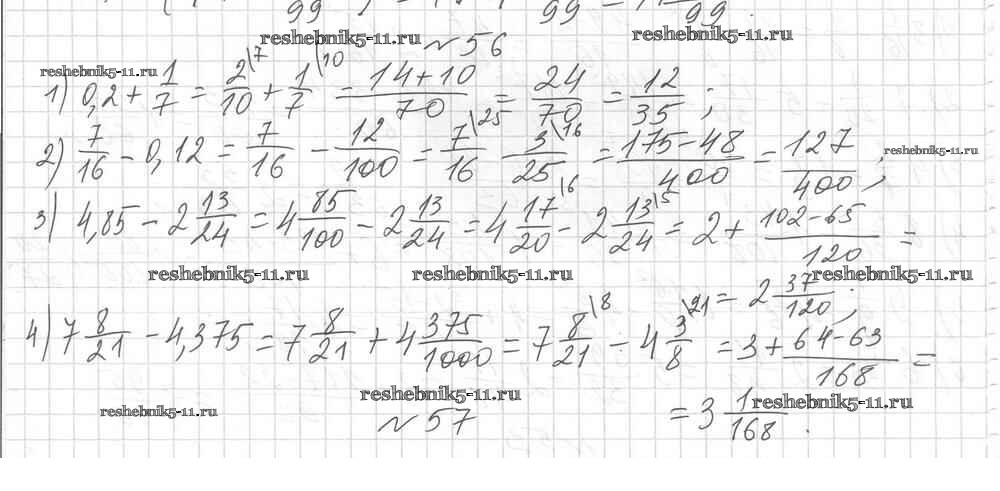 99 99 99
reshebnik5-11.ru reshebnik5-11.ru
№ 56
reshebnik5-11.ru
1) 0,2 + 1/7 = 2\7/10 + 1\10/7 = 14+10/70 = 24/70 = 12/35 ;
2) 7/16 - 0,12 = 7/16 - 12/100 = 7\25/16 - 3\16/25 = 175-48/400 = 127/400 ;
reshebnik5-11.ru
3) 4,85 - 2 13/24 = 4 85/100 - 2 13/24 = 4 17\6/20 - 2 13\5/24 = 2 + 102-65/120 =
reshebnik5-11.ru reshebnik5-11.ru reshebnik5-11.ru
= 2 37/120 ;
4) 7 8/21 - 4,375 = 7 8/21 + 4 375/1000 = 7 8\8/21 - 4 3\21/8 = 3 + 64-63/168 =
reshebnik5-11.ru reshebnik5-11.ru reshebnik5-11.ru
= 3 1/168 .
№ 57